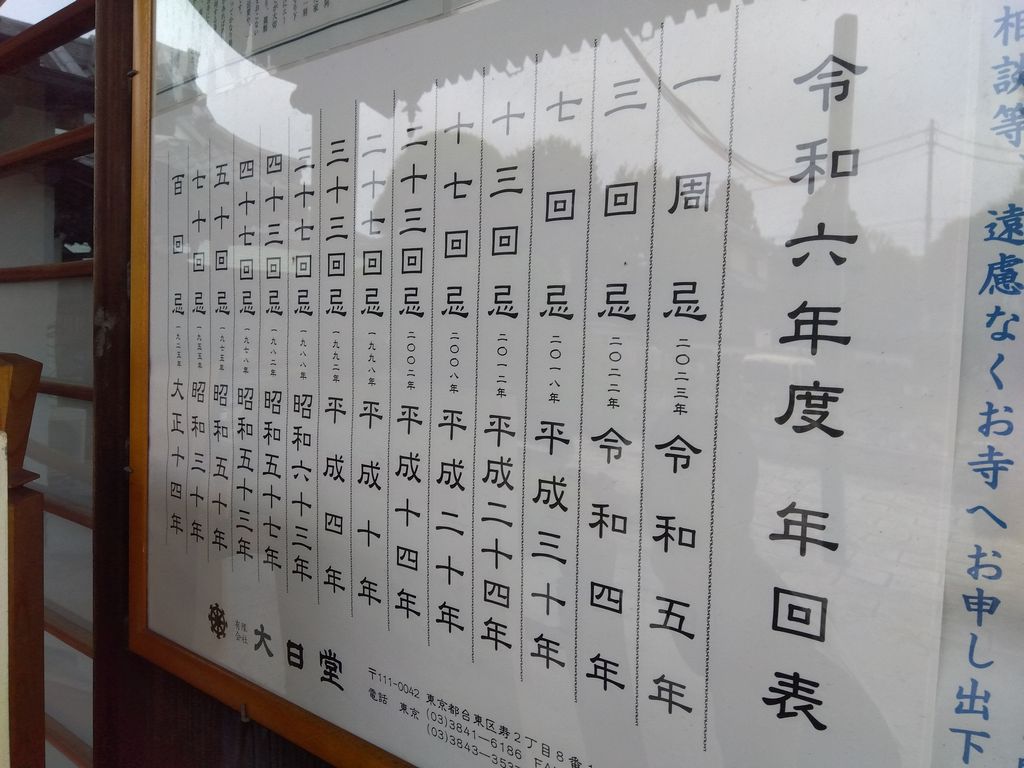 相談等、遠慮なくお寺へお申し出下
令和六年度 年回表
一周忌 二〇二三年 令和五年
三回忌 二〇二二年 令和四年
七回忌 二〇一八年 平成三十年
十三回忌 二〇一二年 平成二十四年
十七回忌 二〇〇八年 平成二十年
二十三回忌 二〇〇二年 平成十四年
二十七回忌 一九九八年 平成十年
三十三回忌 一九九二年 平成四年
三十七回忌 一九八八年 昭和六十三年
四十三回忌 一九八二年 昭和五十七年
四十七回忌 一九七八年 昭和五十三年
五十回忌 一九七五年 昭和五十年
七十回忌 一九五五年 昭和三十年
百回忌 一九二五年 大正十四年
有限会社 大日堂
〒111-0042 東京都台東区寿2丁目8番
電話 東京 (03)3841—6186
(03)3843—353